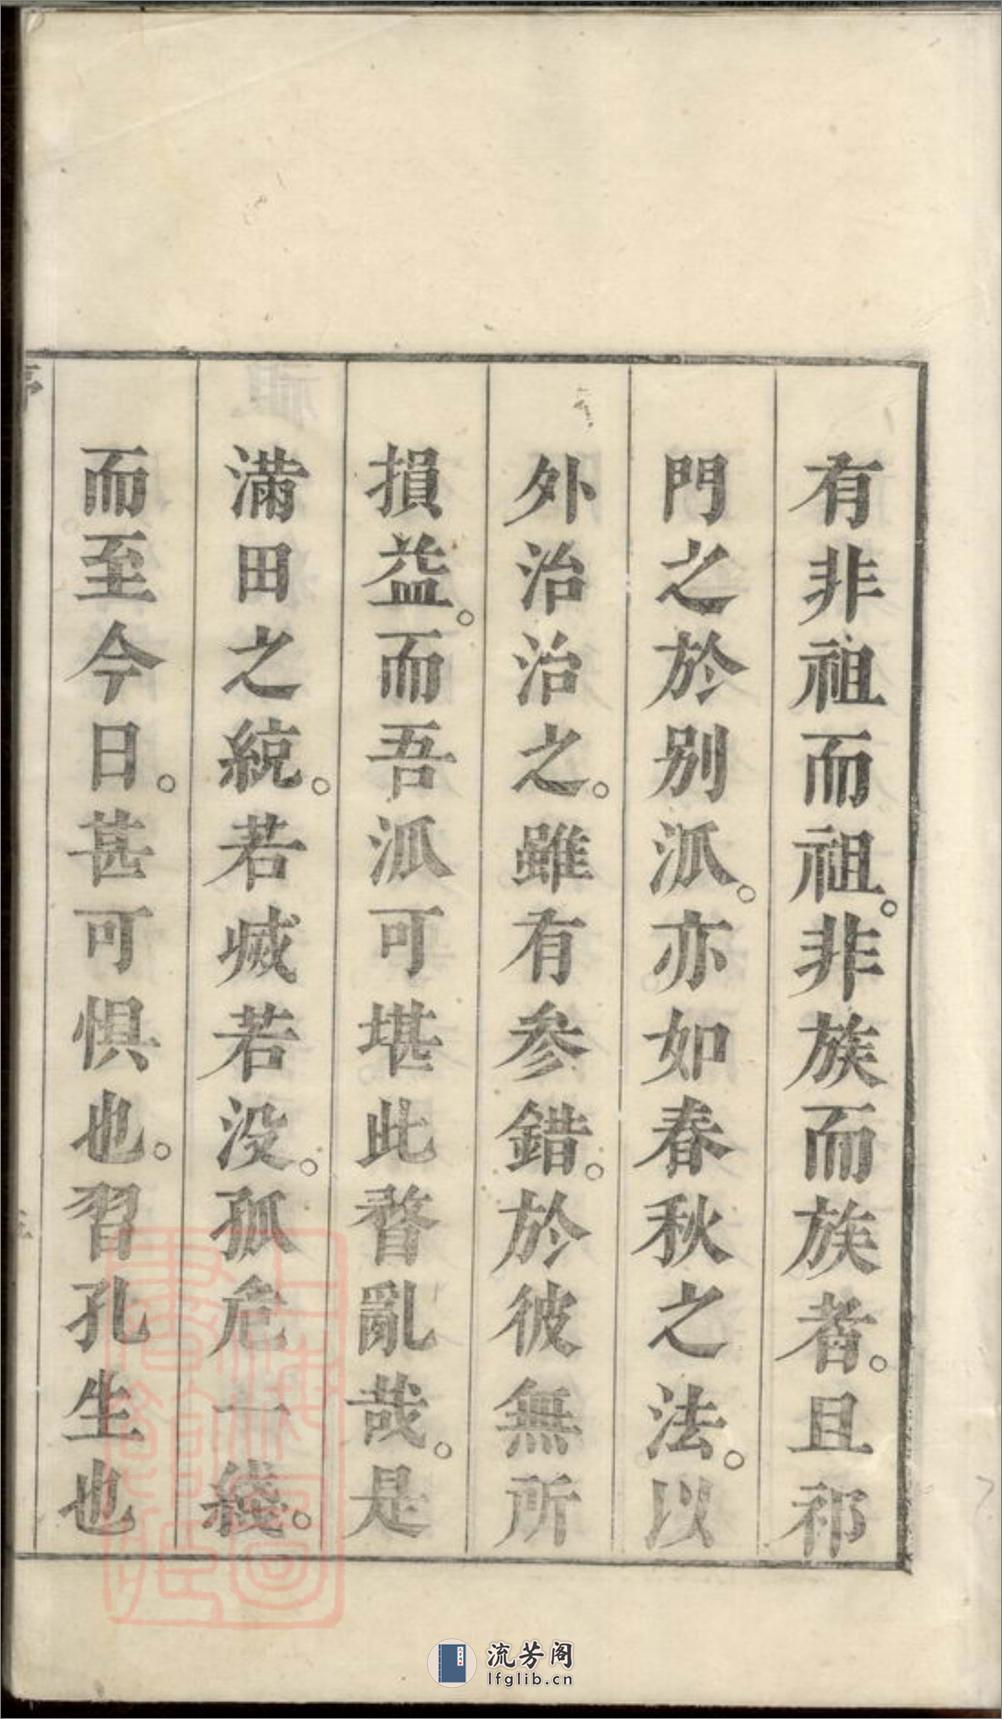 有非祖而祖。非族而族者。且祁
門之於別派。亦如春秋之法。以
外治治之。雖有參錯。於彼無所
損益。而吾派可堪此瞀亂哉。是
滿田之統。若滅若没。孤危一綫。
而至今日。甚可惧也。習孔生也
流芳阁
lfglib.cn